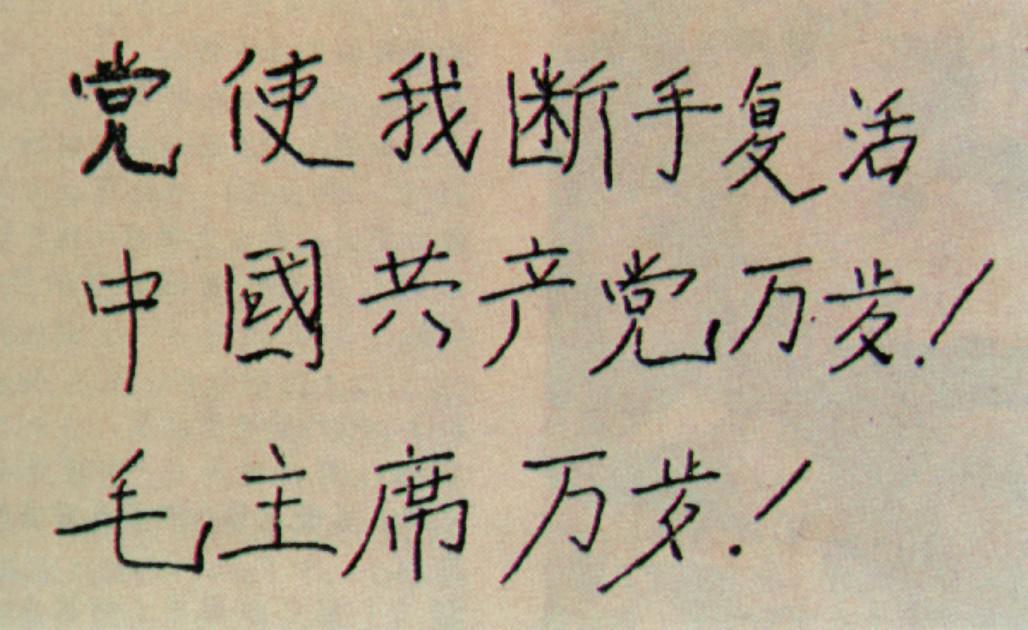 党使我断手复活
中國共产党万岁！
毛主席万岁！